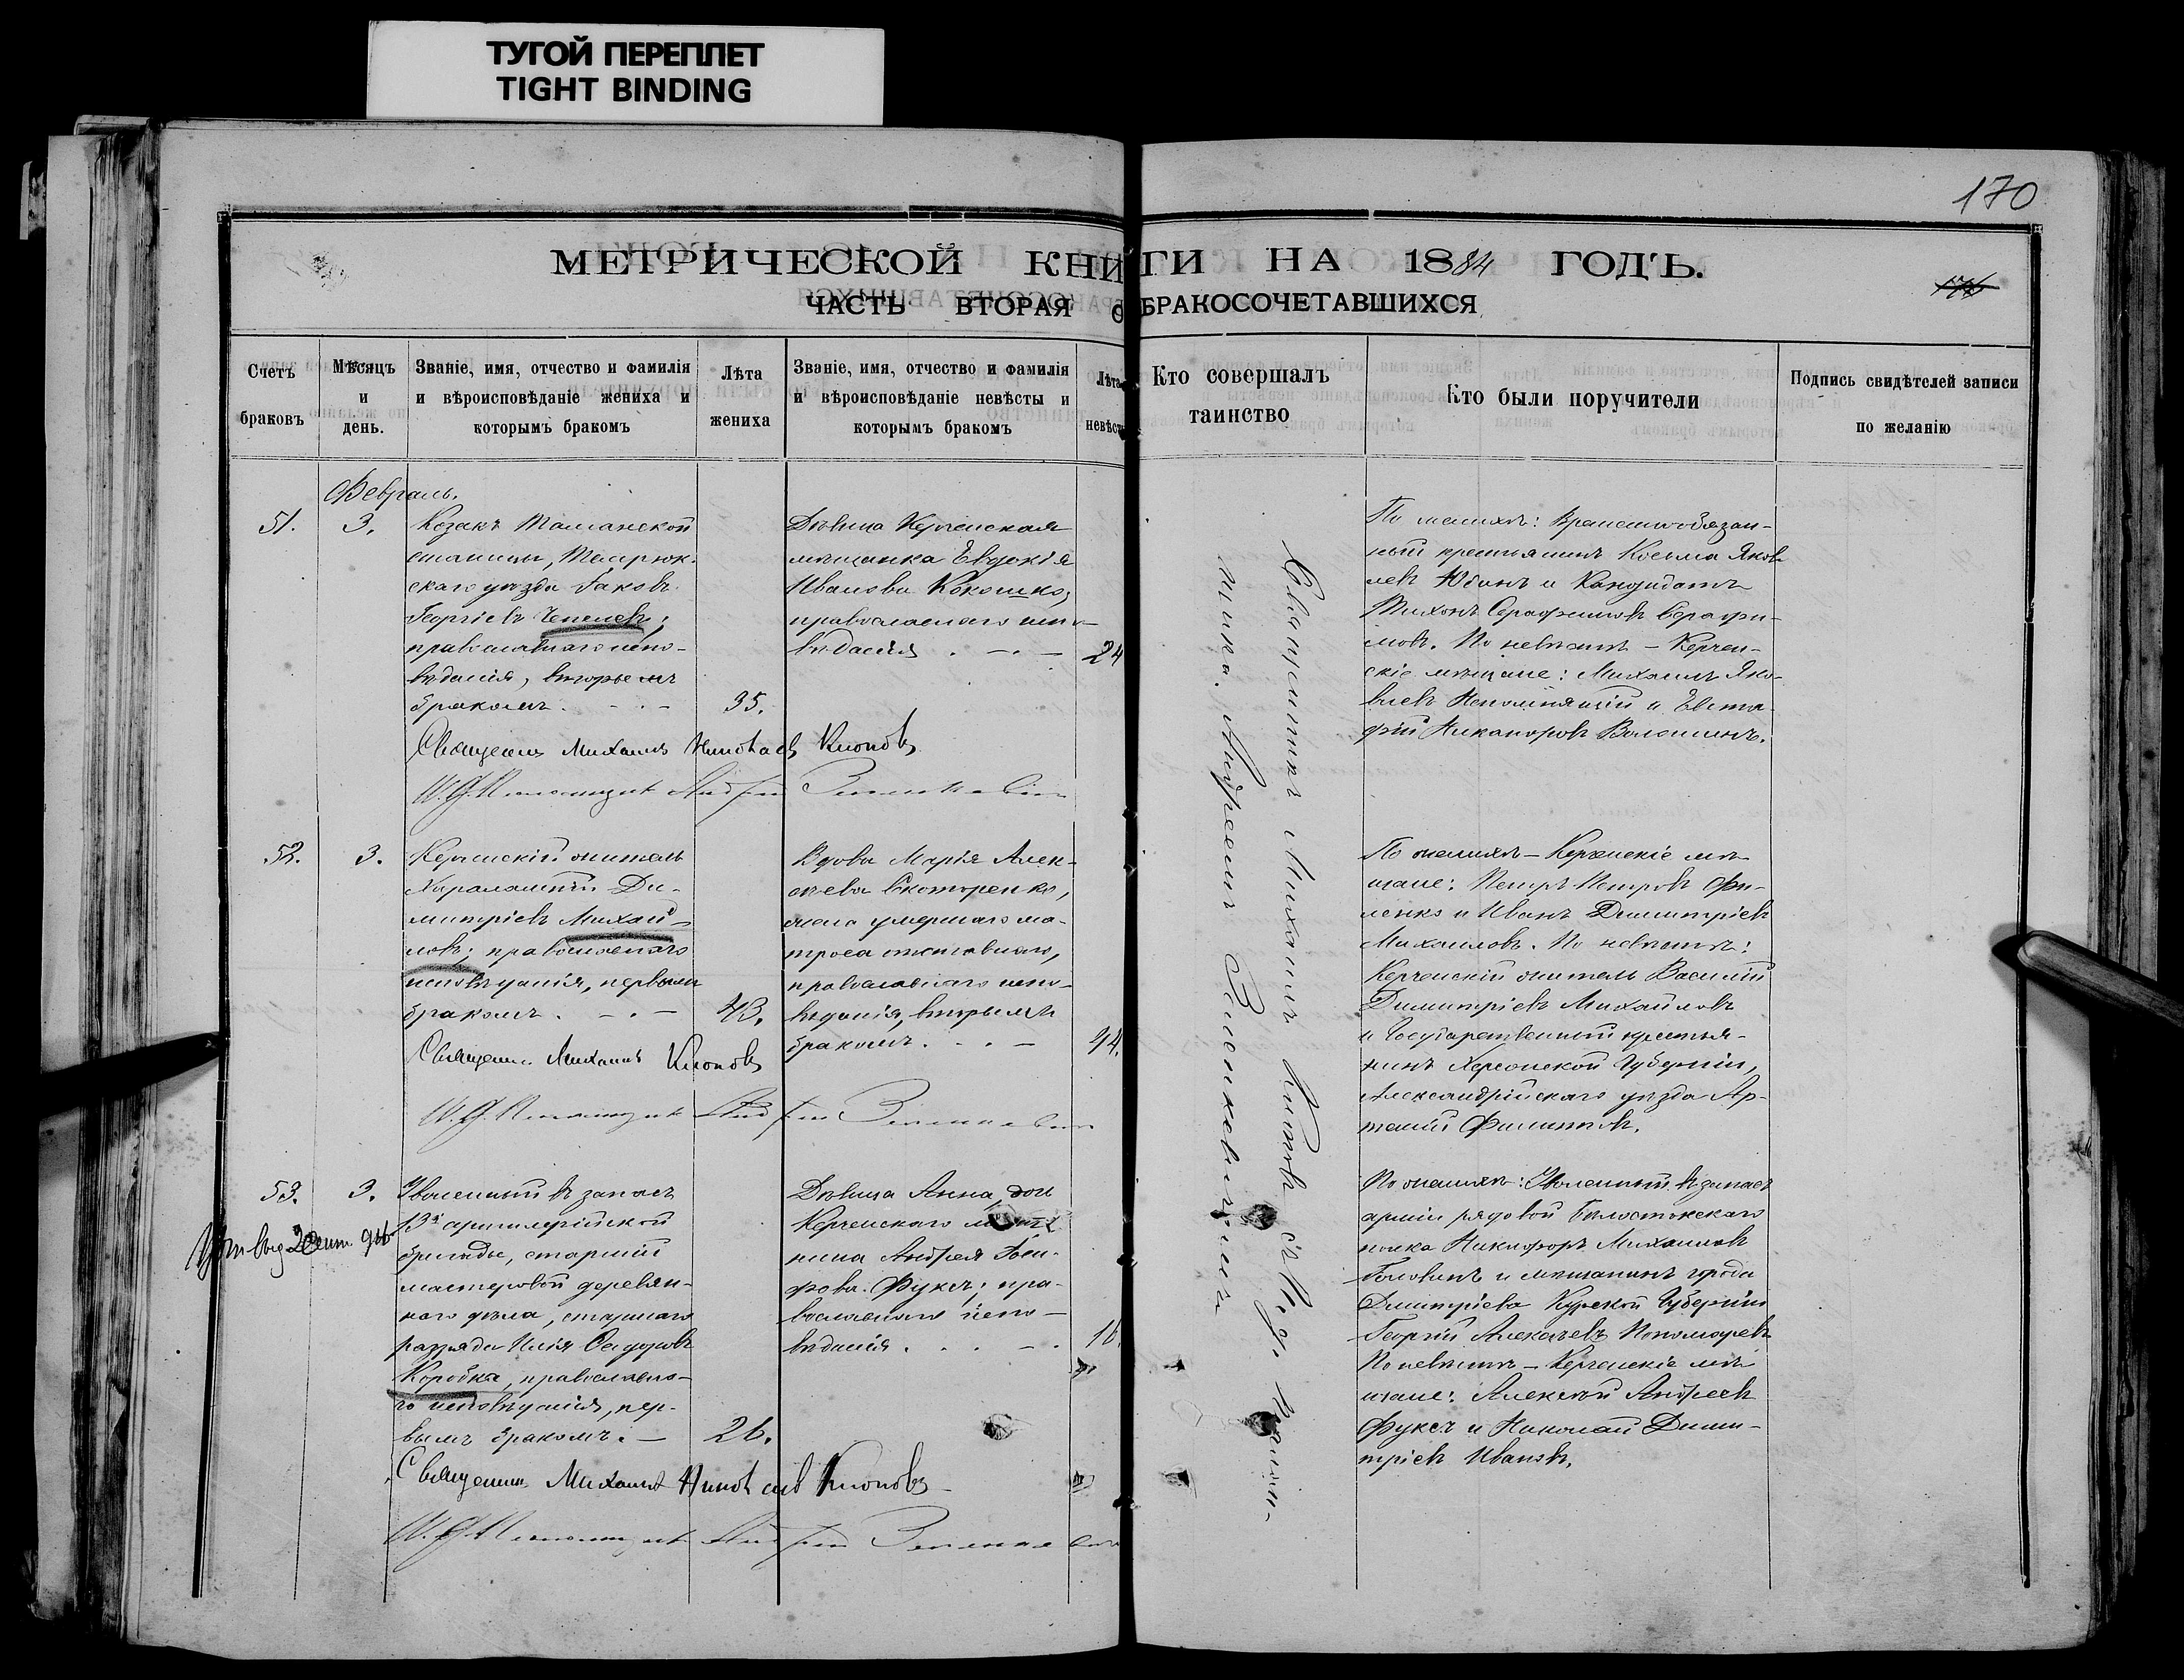 ТУГОЙ ПЕРЕПЛЕТ
TIGHT BINDING
170
МЕТРИЧЕСКОЙ КНИГИ НА 1884 ГОДЪ.
ЧАСТЬ ВТОРАЯ О БРАКОСОЧЕТАВШИХСЯ
Счетъ браковъ
Мѣсяцъ и день.
Званіе, имя, отчество и фамилія
и вѣроисповѣданіе жениха и
которымъ бракомъ
Лѣта жениха
Званіе, имя, отчество и фамилія
и вѣроисповѣданіе невѣсты и
которымъ бракомъ
Лѣта невѣсты
Кто совершалъ
таинство
Кто были поручители
Подпись свидѣтелей записи
по желанію
Февраль.
51.
3.
Козакъ Таманской
станицы, Темрюк-
скаго уѣзда Іаковъ
Георгіевъ Чепелевъ;
православнаго испо-
вѣданія, вторымъ
бракомъ.
35.
Дѣвица Керченская
мѣщанка Евдокія
Иванова Кокошко,
православнаго испо-
вѣданія
24
По женихѣ: Временнообязан-
ный крестьянинъ Косьма Яков-
левъ Юдинъ и Кандидатъ
Тихонъ Серафимовъ Серафи-
мовъ. По невѣстѣ – Керчен-
скіе мѣщане: Михаилъ Яко-
влевъ Непомнящій и Евста-
фій Никаноровъ Волошинъ.
Священн. Михаилъ Николаевъ Клоповъ
И. Д. Псаломщик Андрей Зиленкевич
52.
3.
Керченскій житель
Харалампій Ди-
митріевъ Михай-
ловъ; православнаго
исповѣданія, первымъ
бракомъ.
43.
Вдова Марія Алек-
сѣева Скоторенко,
жена умершаго ма-
троса отставнаго,
православнаго испо-
вѣданія, вторымъ
бракомъ.
44.
По женихѣ – Керченскіе мѣ-
щане: Петръ Петровъ Фи-
ленко и Иванъ Димитріевъ
Михаиловъ. По невѣстѣ:
Керченскій житель Василій
Димитріевъ Михайловъ
и Государственный крестья-
нинъ Херсонской Губерніи,
Александрійскаго уѣзда Ар-
темій Филиповъ.
Священн. Михаилъ Клоповъ
И. Д. Псаломщик Андрей Зиленкевич
53.
3.
Уволенный въ запасъ
13й артилерійской
бригады, старшій
мастеровой деревян-
наго дѣла, старшаго
разряда Илія Сидоровъ
Коробка, православна-
го исповѣданія, пер-
вымъ бракомъ. –
26.
Дѣвица Анна, дочь
Керченскаго
нина Андрея Іоси-
фова Фуксъ; пра-
вославнаго испо-
вѣданія
16.
По женихѣ: Уволенный въ запасъ
арміи рядовой Бѣлостокскаго
полка Никифоръ Михаиловъ
Головинъ и мѣщанинъ города
Димитріева Курской Губерніи
Георгій Алексѣевъ Пономаревъ
По невѣстѣ – Керченскіе мѣ-
щане: Алексѣй Андреевъ
Фуксъ и Николай Дими-
тріевъ Ивановъ.
Священн. Михаилъ Николаевъ Клоповъ
И. Д. Псаломщик Андрей Зиленкевич
Священникъ Михаилъ Клоповъ съ И. д. Псалом-
щика. Андреемъ Зиленкевичемъ